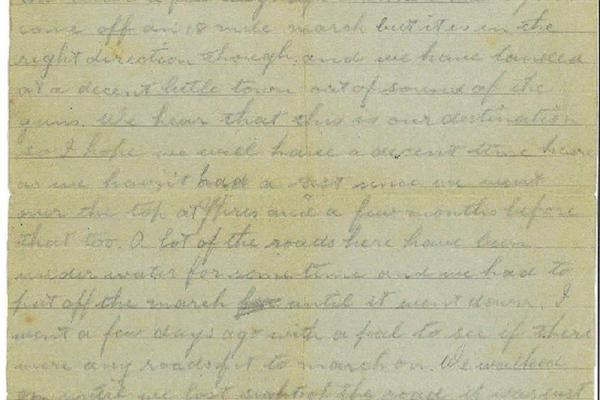 come off an 18 mile march but it is in the
right direction though, and we have landed
at a decent little town out of sound of the
guns. We hear that this is our destination
so I hope we will have a decent time here
as we havn't had a rest since we went
over the top at Ypres and a few months before
that too. A lot of the roads here have been
under water for some time and we had to
put off the march until it went down. I
went a few days ago with a pal to see if there
were any roads fit to march on. We walked
on until we lost sight of the road it was just